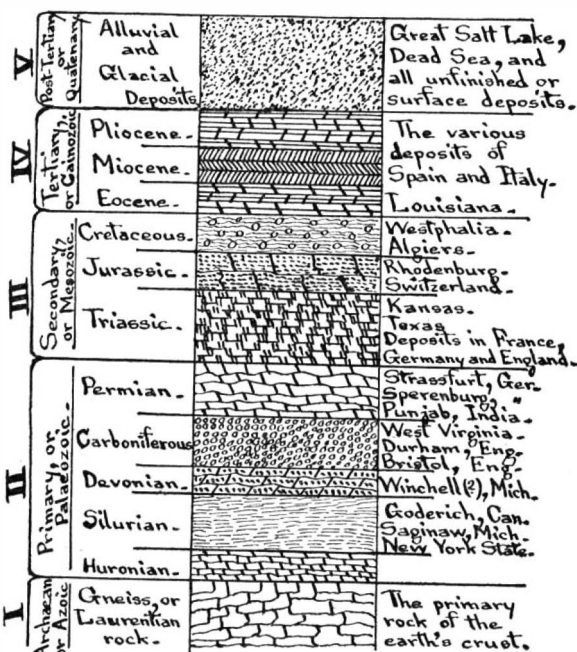 V
Post-Tertiary
or
Quatenary
Alluvial
and
Glacial
Deposits
Great Salt Lake,
Dead Sea, and
all unfinished or
surface deposits.
IV
Tertiary,
or Cainozoic
Pliocene-
Miocene-
Eocene-
The various
deposits of
Spain and Italy-
Louisiana-
III
Secondary,
or Mesozoic-
Cretaceous-
Jurassic-
Triassic-
Westphalia-
Algiers-
Rhodenburg-
Switzerland-
Kansas-
Texas
Deposits in France,
Germany and England-
II
Primary, or
Palaeozoic-
Permian-
Carboniferous
Devonian-
Silurian-
Huronian-
Strassfurt, Ger-
Sperenburg, "
Punjab, India-
West Virginia-
Durham, Eng-
Bristol, Eng-
Winchell(?), Mich.
Goderich, Can.
Saginaw, Mich-
New York State-
I
Archaean
or Azoic
Gneiss, or
Laurentian
rock-
The primary
rock of the
earth's crust.